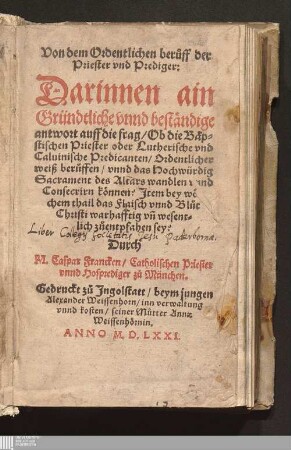 Von dem Ordentlichen berůff der
Priester vnd Prediger:
Darinnen ain
Gründtliche vnnd beständige
antwort auff die frag/ Ob die Bäp-
stischen Priester oder Lutherische vnd
Caluinische Predicanten/ Ordentlicher
weiß berůffen/ vnnd das Hochwürdig
Sacrament des Altars wandlen vnd
Consecrirn können? Item bey wöl
chem thail das Flaisch vnnd Blůt
Christi warhafftig vñ wesent-
lich zůentpfahen sey?
Liber Collegij Societatis Jesu Paderbornæ.
Durch
M. Caspar Francken/ Catholischen Priester
vnnd Hofprediger zů München.
Gedruckt zů Ingolstatt/ beym jungen
Alexander Weissenhorn/ inn verwaltung
vnnd kosten/ seiner Můtter Anna
Weissenhörnin.
ANNO M. D. LXXI.